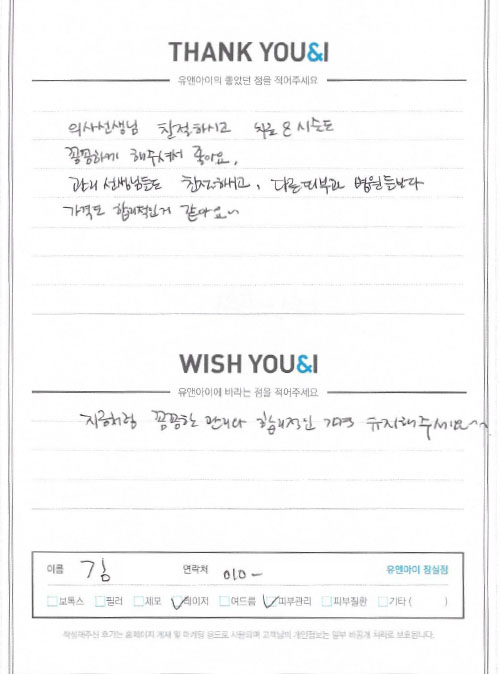 THANK YOU&I
유앤아이의 좋았던 점을 적어주세요
의사선생님 친절하시고 치료 & 시술도
꼼꼼하게 해주셔서 좋아요.
관리 선생님들도 친절하시고, 다른 피부과 병원들보다
가격도 합리적인거 같아요~
WISH YOU&I
유앤아이에 바라는 점을 적어주세요
지금처럼 꼼꼼한 관리와 합리적인 가격 유지해주세요~^
이름 김 연락처 010- 유앤아이 잠실점
보톡스 필러 제모 레이저 여드름 피부관리 피부질환 기타 ( )
작성해주신 후기는 홈페이지 게재 및 마케팅 용도로 사용되며 고객님의 개인정보는 일부 비공개 처리로 보호됩니다.